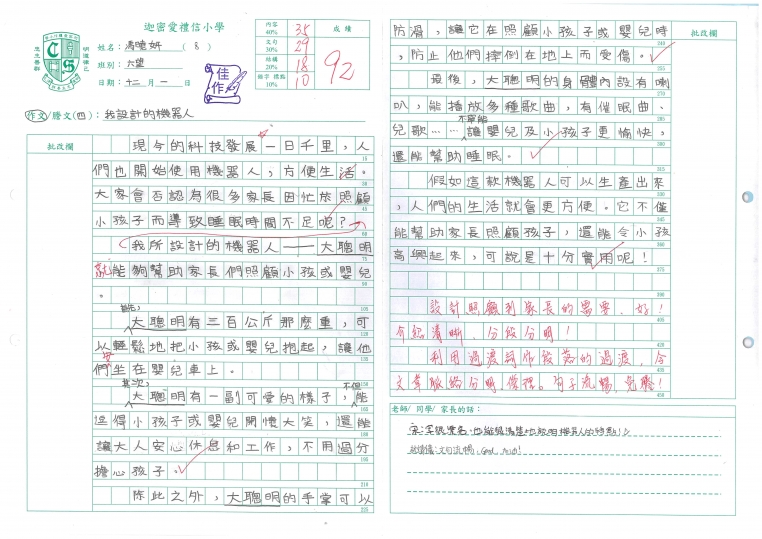 迦密愛禮信小學
姓名：馮曉妍（8）
班別：六望
日期：十二月一日
內容 40% 35
文句 30% 29
結構 20% 18
錯字 標點 10% 10
成績
92
佳作
作文/謄文(四)：我設計的機器人
批改欄
現今的科技發展一日千里，人
們也開始使用機器人，方便生活。
大家會否認為很多家長因忙於照顧
小孩子而導致睡眠時間不足呢？
我所設計的機器人——大聰明
就能夠幫助家長們照顧小孩或嬰兒
。
首先，
大聰明有三百公斤那麼重，可
以輕鬆地把小孩或嬰兒抱起，讓他
們坐在嬰兒車上。
其次，
不但
大聰明有一副可愛的樣子，能
逗得小孩子或嬰兒開懷大笑，還能
讓大人安心休息和工作，不用過分
擔心孩子。
除此之外，大聰明的手掌可以
批改欄
防滑，讓它在照顧小孩子或嬰兒時
，防止他們摔倒在地上而受傷。
最後，大聰明的身體內設有喇
叭，能播放多種歌曲，有催眠曲、
兒歌……讓嬰兒及小孩子更愉快，
還能幫助睡眠。
假如這款機器人可以生產出來
，人們的生活就會更方便。它不僅
能幫助家長照顧孩子，還能令小孩
高興起來，可說是十分實用呢！
設計照顧到家長的需要，好！
介紹清晰，分段分明！
利用過渡詞作段落的過渡，令
文章脈絡分明，條理。句子流暢，完整！
老師/ 同學/ 家長的話：